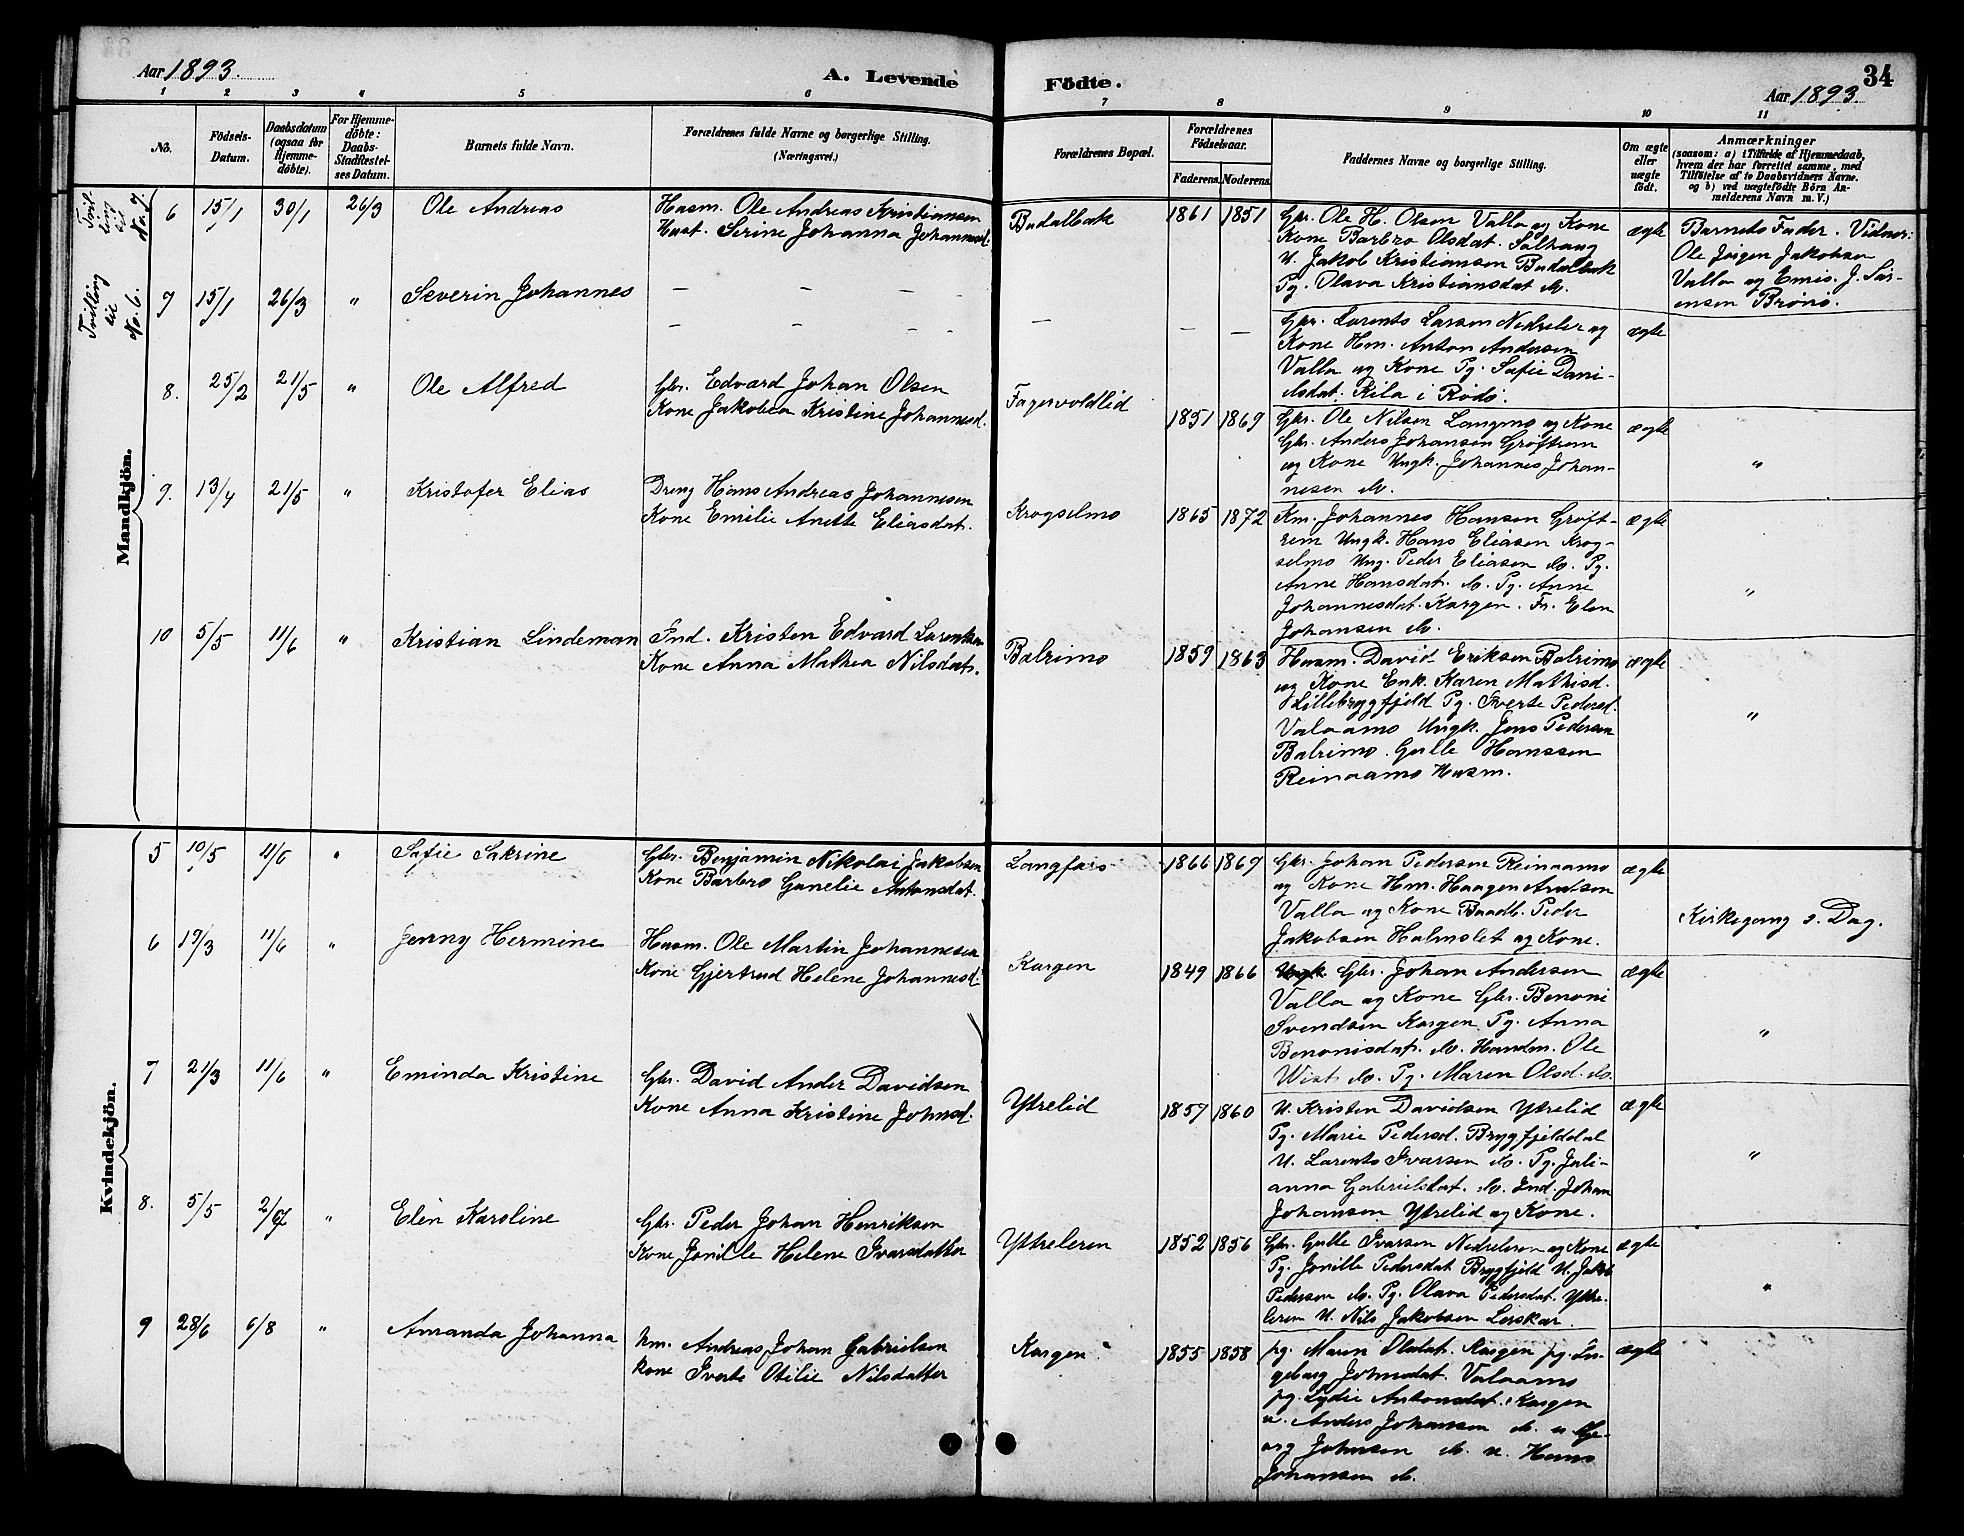 Aar 1893.
A. Levende Födte.
34
Aar 1893.
1 2 3 4 5 6 7 8 9 10 11
No.
Födsels-Datum.
Daabsdatum (ogsaa for Hjemme-döbte).
For Hjemme-döbte: Daabs-Stadfæstelses Datum.
Barnets fulde Navn.
Forældrenes fulde Navne og borgerlige Stilling.
(Næringsvei.)
Forældrenes Bopæl.
Forældrenes Födselsaar.
Faderens. Moderens.
Faddernes Navne og borgerlige Stilling.
Om ægte eller uægte födt.
Anmærkninger
(saasom: a) i Tilfælde af Hjemmedaab,
hvem der har forrettet samme, med
Tilföielse af to Daabsvidners Navne.
og b) ved uægtefödte Börn An-
melderens Navn m. V.)
Mandkjön.
Tvilling til No. 7.
6 15/1 30/1 26/3 Ole Andreas
Husm. Ole Andreas Kristiansen
Hust. Serine Johanna Johannesd.
Budalbak 1861 1851
Gbr. Ole H. Olsen Valla og Kone
Kone Barbro Olsdat. Solhaug
U. Jakob Kristiansen Budalbak
Pg. Olava Kristiansdat do.
ægte
Barnets Fader. Vidner:
Ole Jörgen Jakobsen
Valla og Emis. J. Sör-
ensen Brönö.
Tvilling til No. 6.
7 15/1 26/3 " Severin Johannes
— — — —
— — — —
— — —
Gbr. Lorents Larsen Nedreler og
Kone Hm. Anton Andersen
Valla og Kone Pg. Sofie Dani-
elsdat. Kila i Rödö.
ægte
8. 25/2 21/5 " Ole Alfred
Gbr. Edvard Johan Olsen
Kone Jakobea Kristine Johannesd.
Fagervoldlid 1851 1869
Gbr. Ole Nilsen Langmo og Kone
Gbr. Anders Johansen Gröftrem
og Kone Ungk. Johannes Johan-
nesen do.
ægte "
9. 13/4 21/5 " Kristofer Elias
Dreng Hans Andreas Johannesen
Kone Emilie Anette Eliasdat.
Krogselmo 1865 1872
Km. Johannes Hansen Gröft-
rem Ungk. Hans Eliasen Krog-
selmo Ung. Peder Eliasen do. Pg.
Anne Hansdat. do. Pg. Anne
Johannesdat. Kargen. Fr. Elen
Johansen do.
ægte "
10 5/5 11/6 " Kristian Lindeman
Ind. Kristen Edvard Lorentsen
Kone Anna Mathea Nilsdat.
Balrimo 1859 1863
Husm. David Eriksen Balrimo
og Kone Enk. Karen Mathisd.
Lillebryggfjeld Pg. Sverte Pedersd.
Valaamo Ungk. Jens Pedersen
Balrimo. Gulle Hanssen
Reinaamo Husm.
ægte "
Kvindekjön.
5 10/5 11/6 " Sofie Sakrine
Gbr. Benjamin Nikolai Jakobsen
Kone Barbro Gunelie Antonsdat.
1866 1869
Gbr. Johan Pedersen Reinaamo
og Kone Hm. Haagen Arntsen
Valla og Kone Baadb. Peder
Jakobsen Holmslet og Kone.
ægte
Kirkegang s. Dag.
6 19/3 11/6 " Jenny Hermine
Husm. Ole Martin Johannesen
Kone Gjertrud Helene Johannesd.
Kargen 1849 1866
Ungk. Gbr. Johan Andersen
Valla og Kone Gbr. Benoni
Svendsen Kargen Pg. Anna
Benonisdat. do. Handm. Ole
Wist do. Pg. Maren Olsd. do.
ægte "
7 21/3 11/6 " Eminda Kristine
Gbr. David Ander Davidsen
Kone Anna Kristine Johnsd.
Ytrelid 1857 1860
U. Kristen Davidsen Ytrelid
Pg. Marie Pedersd. Bryggfjelddal
U. Lorents Ivarsen do. Pg. Juli-
anna Gabrielsdat. do. Ind. Johan
Johansen Ytrelid og Kone.
ægte "
8. 5/5 2/7 " Elen Karoline
Gbr. Peder Johan Henriksen
Kone Jonille Helene Ivarsdatter
Ytreleren 1852 1856
Gbr. Gulle Ivarsen Nedreleren og Kone
Pg. Jonille Pedersdat Bryggfjeld U. Jakob
Pedersen do. Pg. Olava Pedersdat. Ytre-
leren U. Nils Jakobsen Leiskar.
ægte "
9 28/6 6/8 " Amanda Johanna
hm. Andreas Johan Gabrielsen
kone Sverte Otilie Nilsdatter
Kargen 1855 1858
pg. Maren Olsdat. Kargen pg. In-
geborg Johnsdat. Valaamo
pg. Lydie Antonsdat. Kargen
u. Anders Johansen do. u.
Johnsen do. u. Hans
Johansen do.
ægte